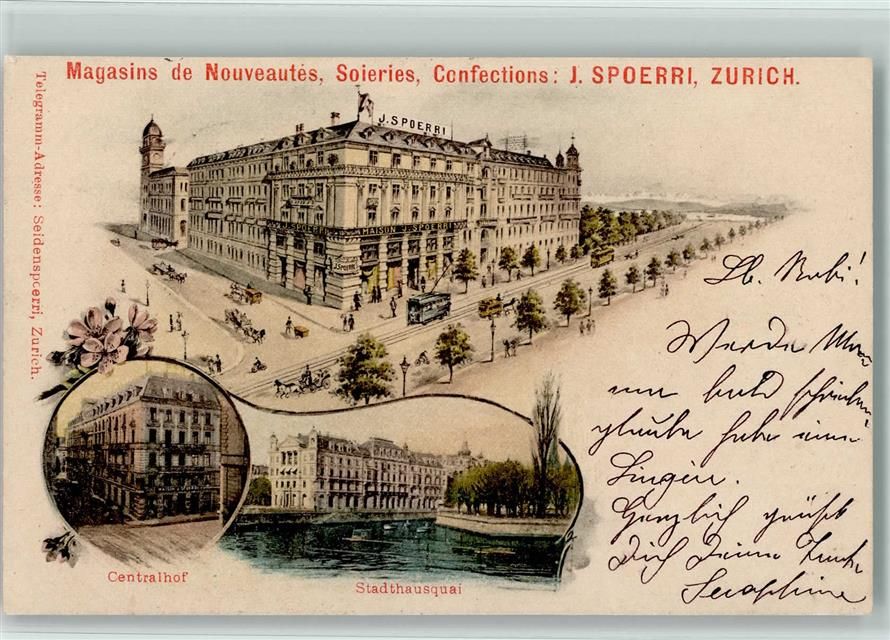 Magasins de Nouveautés, Soieries, Confections: J. SPOERRI, ZURICH.
Telegramm-Adresse: Seidenspoerri, Zurich.
J. SPOERRI
J. SPOERRI
MAISON J. SPOERRI
J. SPOERRI
Lb. Rubi!
Werde
nun bald schreiben
glaube habe eine
Herzlich grüßt
Dich Deine
Seraphine
Centralhof
Stadthausquai